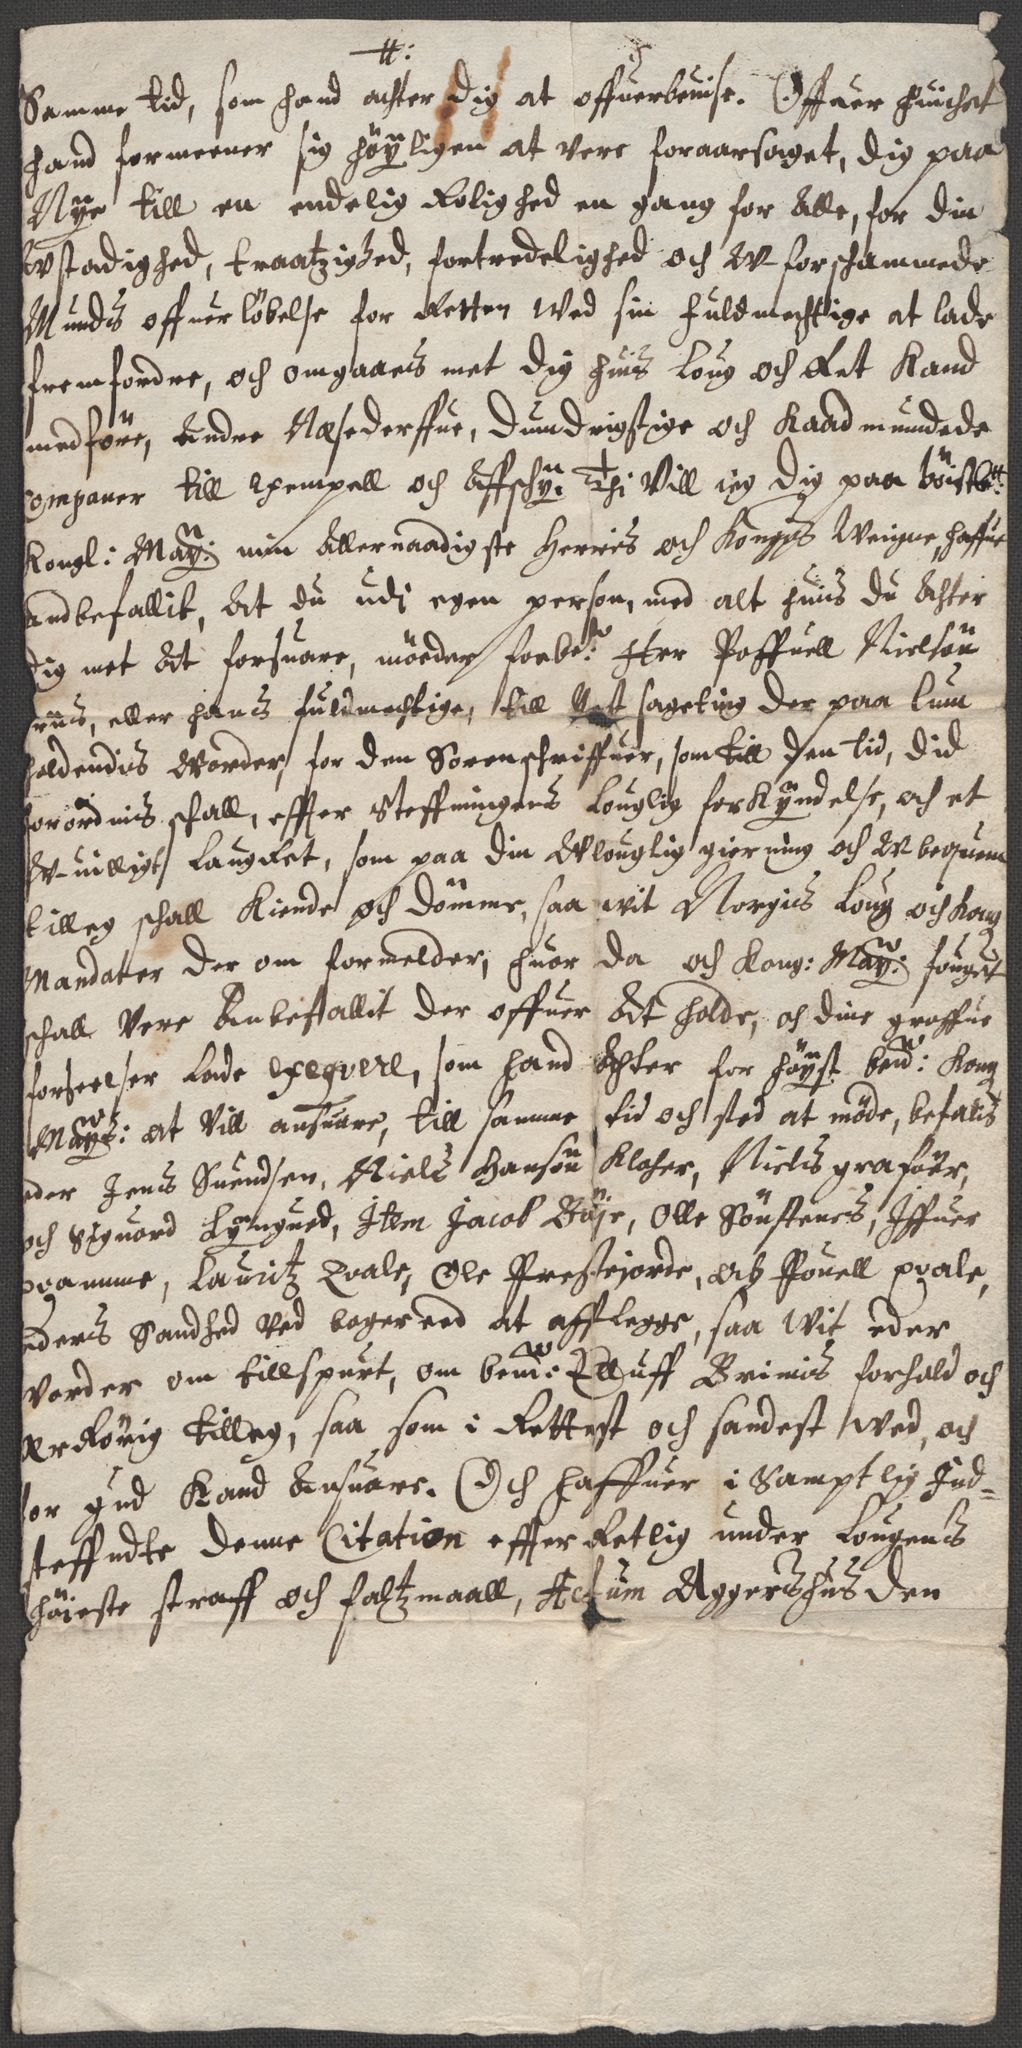 #:
Samme tid, som hand achter dig at offuerbeuise. Offuer huilchet
hand formeener sig höÿligen at vere foraarsaget, dig paa
Nÿe till en endelig Rolighed en gang for Alle, for din
Wstadighed, traatzighed, fortredelighed och W-forschammede
Munds offuerløbelse for Retten wed sin fuldmechtige at lade
fremfordre, och omgaaes met dig huis Loug och Ret Kand
medföre, Andre Næsederffue, Dumdrigstige och Kaadmundede
Companer till Exempell och Affschÿ. Thi Vill ieg dig paa
Kongl: Maÿ: min Allernaadigste Herris och Kongis Weigne, haffue
Andbefallit, At du udj egen person, med alt huis du Achter
dig met At forsuare, möeder forbe: Herr Poffuell Nielsön
eller hans fuldmechtige, till Ret sageting der paa Lum
holdendis Worder, for den Sorenschriffuer, som till den tid, did
forordnis schall, effter Steffningens Louglig forkÿndelse, och et
W-uilligt Laugret, som paa din Wlouglig gierning och W-bequem
tilleg schall Kiende och dömme, saa wit Norgis Loug och Kong
Mandater der om formelder, huor da och Kong: Maÿ: fougit
schall Vere Anbefallit der offuer At holde, och dine groffue
forseelser Lade Exeqvere, som hand Achter for höÿst ben: Kong
Maÿs: at Vill ansuare, till samme tid och sted at möde, befalis
eder Jens Suendsen, Niels Hansön Klocher, Niels
och Siguord Lÿngued, Item Jacob Böje, Olle Sönstenes, Iffuer
Lauritz Qvale, Ole och Pouell Qvale,
eders Sandhed ved boger eed at afflegge, saa Wit eder
vorder om tillspurt, om ben: Elluff Brimis forhold och
ærRörig tilleg, saa som i Rettest och sandest Wed, och
for gud Kand Ansuare. Och haffuer i Samptlig Ind-
steffndte denne Citation effterRetlig under Lougens
höieste straff och faltzmaall, Actum Aggershus den